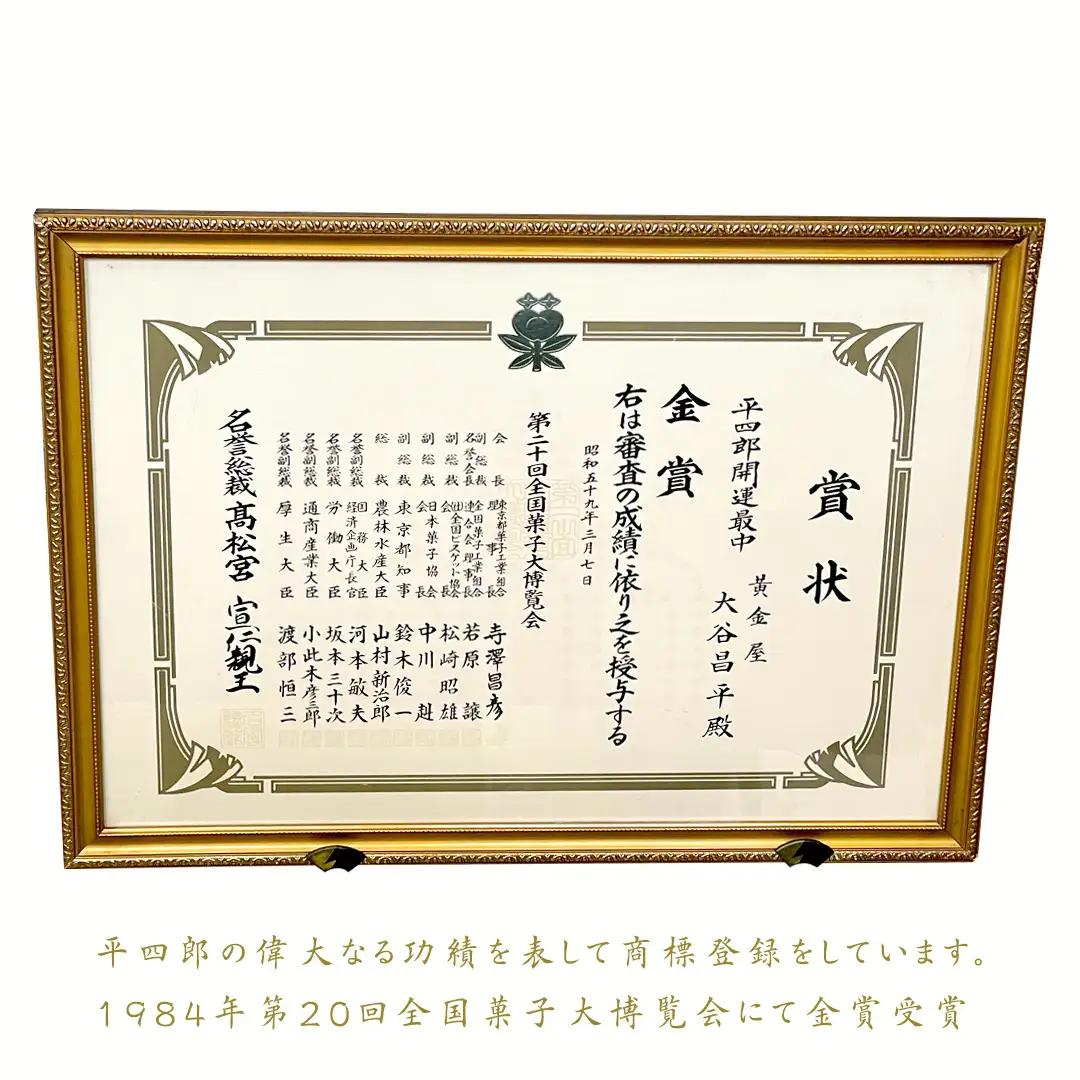 賞状
平四郎開運最中
黄金屋
大谷昌平殿
金賞
右は審査の成績に依り之を授与する
昭和五十九年三月七日
第二十回全国菓子大博覧会
会長 東京都菓子工業組合理事長 寺澤昌彦
副総裁 名誉会長 全国菓子工業組合連合会理事長 若原譲
副総裁 会長 松崎昭雄
副総裁 日本菓子協会会長 中川赳
副総裁 東京都知事 鈴木俊一
総裁 農林水産大臣 山村新治郎
名誉副総裁 国務大臣 経済企画庁長官 河本敏夫
名誉副総裁 労働大臣 坂本三十次
名誉副総裁 通商産業大臣 小此木彦三郎
名誉副総裁 厚生大臣 渡部恒三
名誉総裁 髙松宮 宣仁親王
平四郎の偉大なる功績を表して商標登録をしています。
1984年第20回全国菓子大博覧会にて金賞受賞